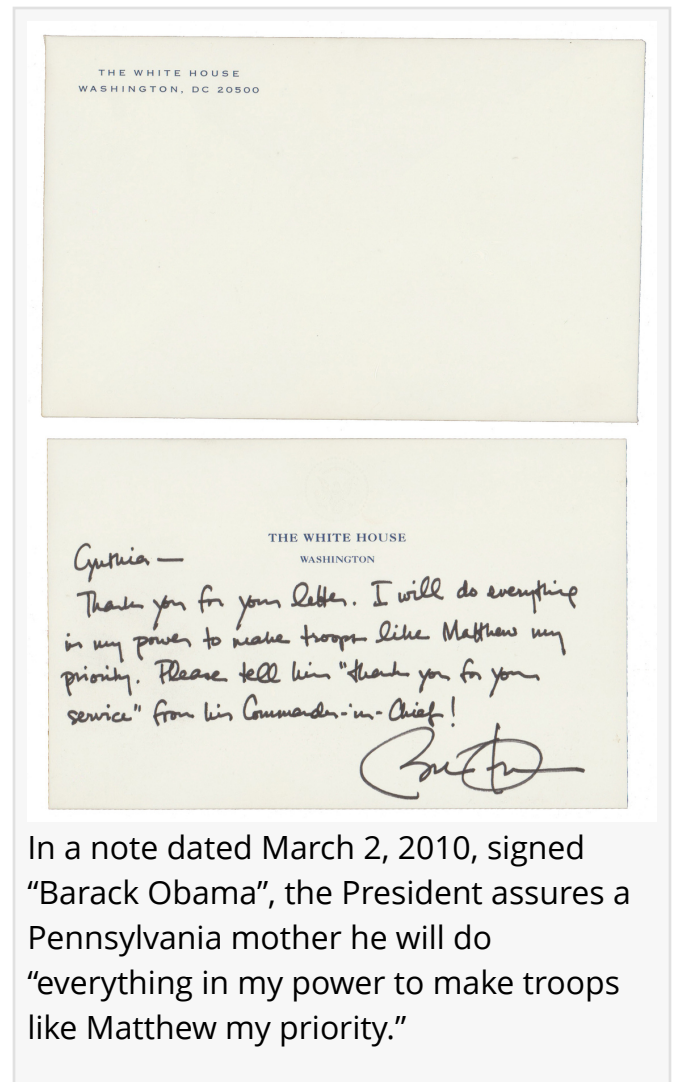 THE WHITE HOUSE
WASHINGTON, DC 20500
THE WHITE HOUSE
WASHINGTON
Cynthia —
Thank you for your letter. I will do everything
in my power to make troops like Matthew my
priority. Please tell him "thank you for your
service" from his Commander-in-Chief!
In a note dated March 2, 2010, signed
“Barack Obama”, the President assures a
Pennsylvania mother he will do
“everything in my power to make troops
like Matthew my priority.”